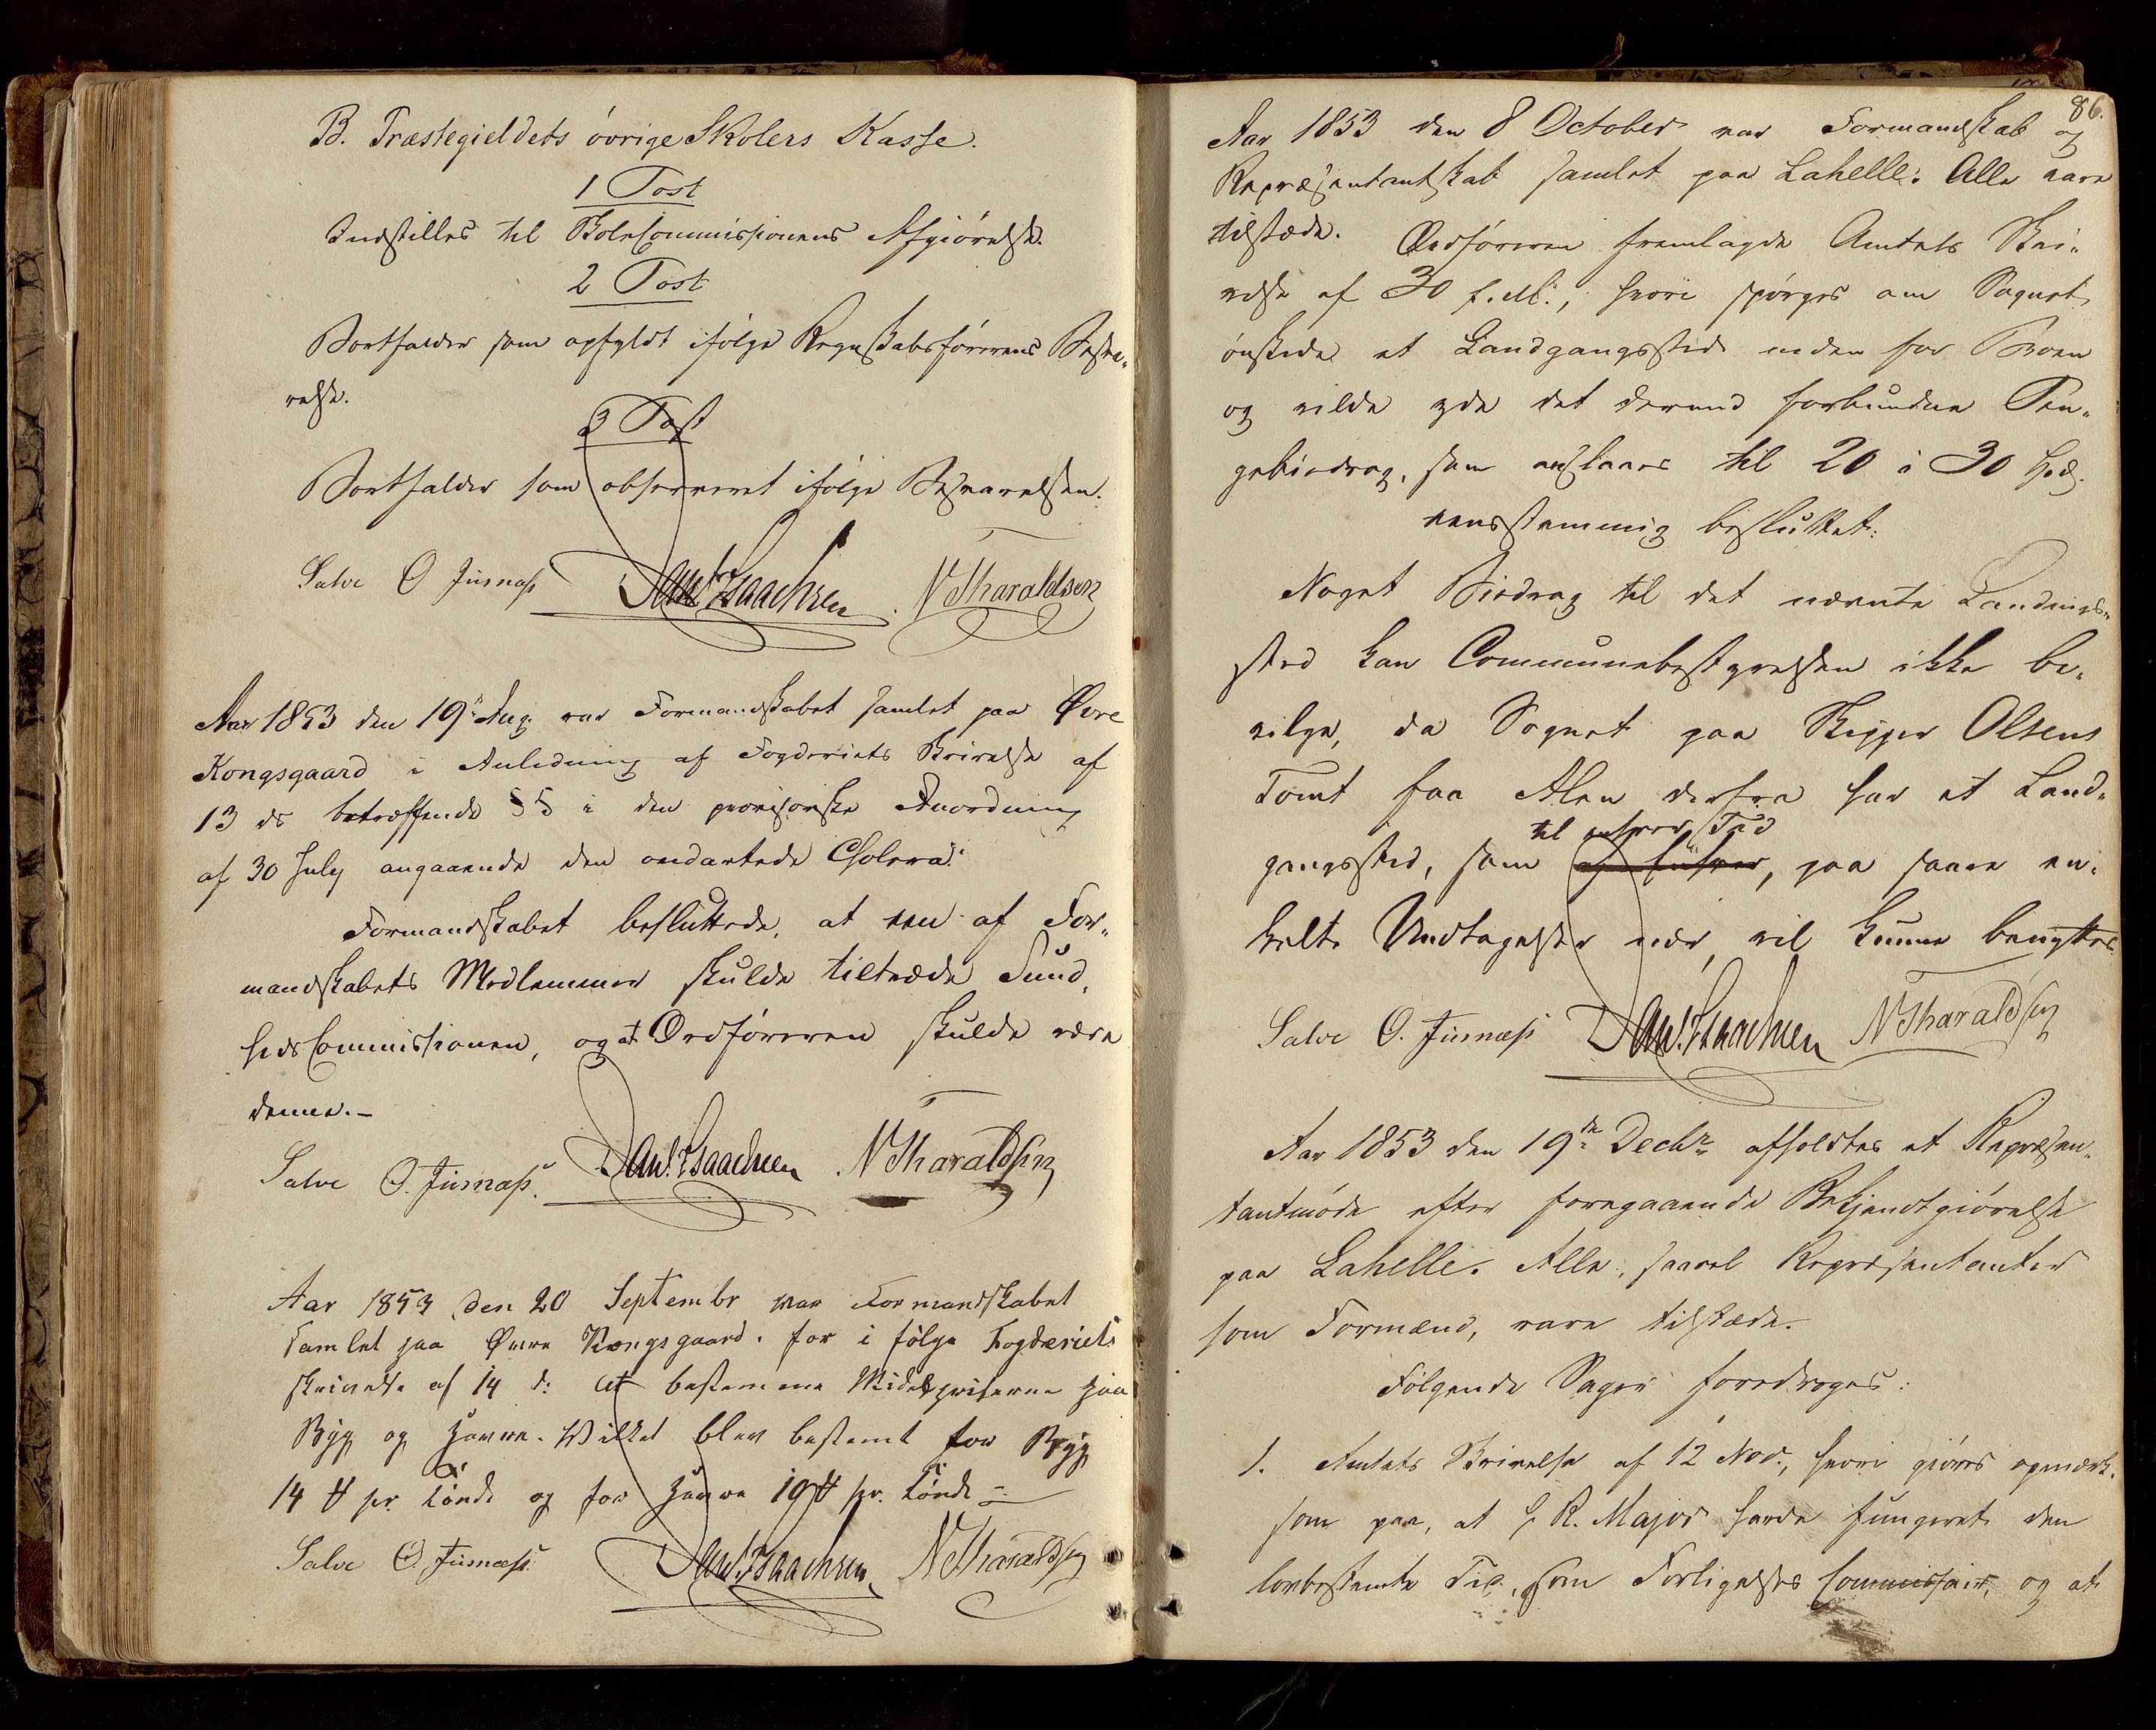 B. Præstegieldets övrige Skolers Kasse.
1 Post
Indstilles til SkoleCommissionens Afgiörelse.
2 Post
Bortfalder som opfyldt ifölge Regnskabsförerens Besva-
relse.
3 Post
Bortfalder som observeret ifölge Besvarelsen.
Salve O Jusnæss Dan. Isaachsen N Tharaldsen
Aar 1853 den 19de Aug. var Formandskabet samlet paa Øvre
Kongsgaard i Anledning af Fogderiets Skrivelse af
13 ds betræffende § 5 i den provisoriske Anordning
af 30 July angaaende den ondartede Cholera.
Formandskabet besluttede, at een af For-
mandskabets Medlemmer skulde tiltræde Sund-
hedsCommissionen, og at Ordföreren skulde være
denne.-
Salve O. Jusnæss. Dan. Isaachsen N Tharaldsen
Aar 1853 den 20 Septembr var Formandskabet
samlet paa Øvre Kongsgaard. for i fölge Fogderiets
skrivelse af 14 d: at bestemme Middelpriserne paa
Byg og Havre. Hvilket blev bestemt for Byg
14 ℔ pr. Tönde og for Havre 10 ℔ pr. Tönde
Salve O. Jusnæss. Dan. Isaachsen N Tharaldsen
86.
Aar 1853 den 8 October var Formandskab og
Repræsentantskab samlet paa Lahelle. Alle vare
tilstæde. Ordföreren fremlagde Amtets Skri-
velse af 30 f. M., hvori spörges om Sognet
önskede et Landgangssted neden for Broen
og vilde yde det derved forbundne Pen-
gebidrag, som anslaaes til 20 à 30 Spd.
eensstemmig besluttet:
Noget Bidrag til det nævnte Landings-
sted kan Communebestyrelsen ikke be-
vilge, da Sognet paa Skipper Olsens
Tomt faa Alen derfra har et Land-
til enhver Tid
gangssted, som, paa saare en-
kelte Undtagelser nær, vil kunne benyttes
Salve O. Jusnæss Dan. Isaachsen N Tharaldsen
Aar 1853 den 19de Decbr afholdtes et Repræsen-
tantmöde efter foregaaende Bekjendtgiörelse
paa Lahelle. Alle, saavel Repræsentanter
som Formænd, vare tilstæde.
Fölgende Sager foredroges:
1. Amtets Skrivelse af 12 Nov., hvori giöres opmærk-
som paa, at R. Major havde fungeret den
lovbestemte Tid, som Forligelses Commissair, og at